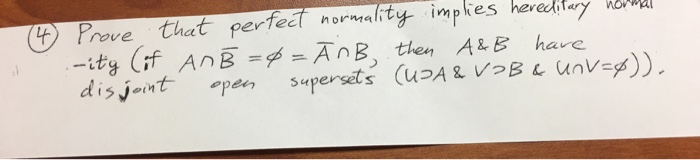 ④ Prove that perfect normality implies hereditary normal
-ity (if A∩B̅ = ϕ = A̅∩B, then A&B have
disjoint open supersets (U⊃A & V⊃B & U∩V=ϕ)).